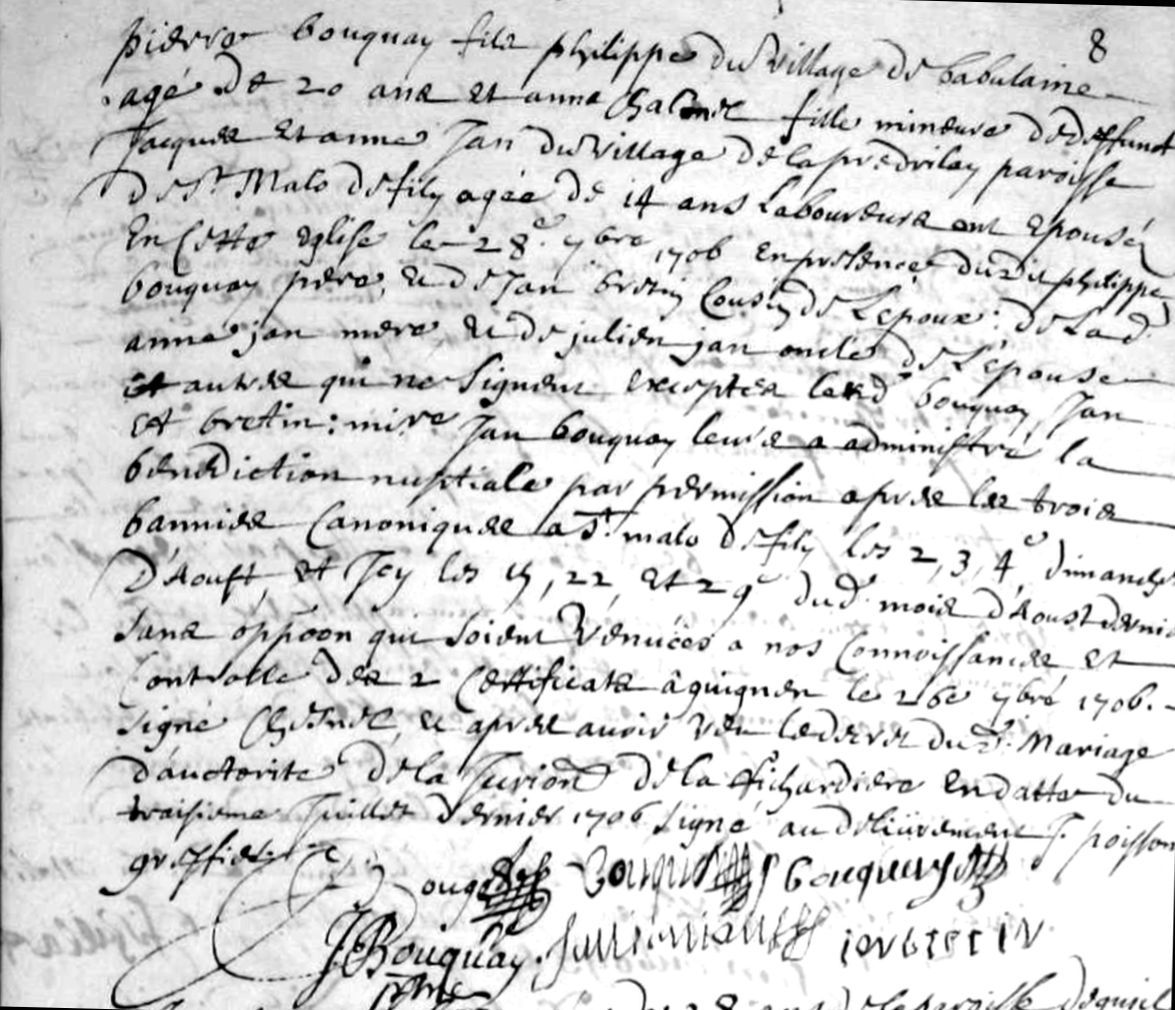 8
pierre bouquay fils philippe du village de babulaine
agé de 20 ans et anne fille mineure de deffunct
Jacques et anne Jan du village de la paroisse
de St Malo de fily agée de 14 ans Laboureurs ont Epousé
En Cette Eglise le 28e 7bre 1706 En presence dudit philippe
bouquay pere, et de Jan bretin Cousin de L'epoux: de Lad
anne jan mere et de julien jan oncle de L'epouse
et autres qui ne signent exceptes lesd bouquay, Jan
et bretin: mire Jan bouquay leurs a administré la
benediction nuptiale par permission apres les trois
bannies Canoniques a St malo de fily les 2, 3, 4e dimanches
D'Aoust, et Icy les 15, 22, et 29e dud mois d'Aoust derni
sans oppoon qui soient venuees a nos Connoissances et
Controlle des 2 Certificats à guignen le 26e 7bre 1706.
signé Chesnel, et apres avoir veu le decret dud. Mariage
d'auctorite de la Jurion de la Richardiere En datte du
troisieme Juillet dernier 1706 signé au delivrement J. poisson
greffier
bouquay
J Bouquay
Julien ian
ian bretin
ptre
28 ans de la paroisse de guipel